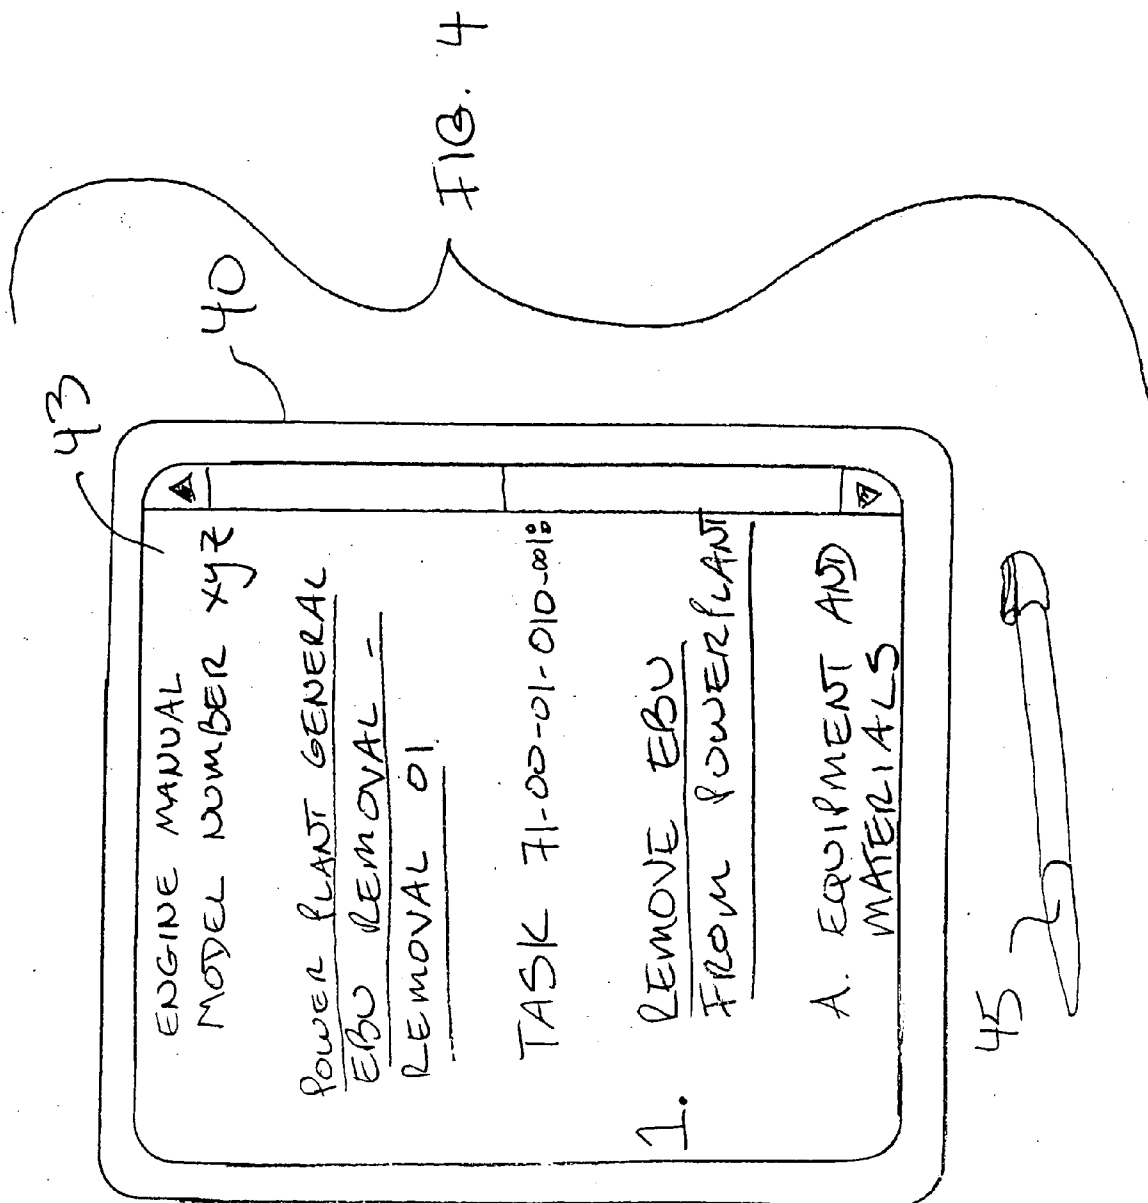 FIG. 4
43
40
ENGINE MANUAL
MODEL NUMBER xyz
POWER PLANT GENERAL
EBU REMOVAL -
REMOVAL 01
TASK 71-00-01-010-001:
1. REMOVE EBU
FROM POWERPLANT
A. EQUIPMENT AND
MATERIALS
45